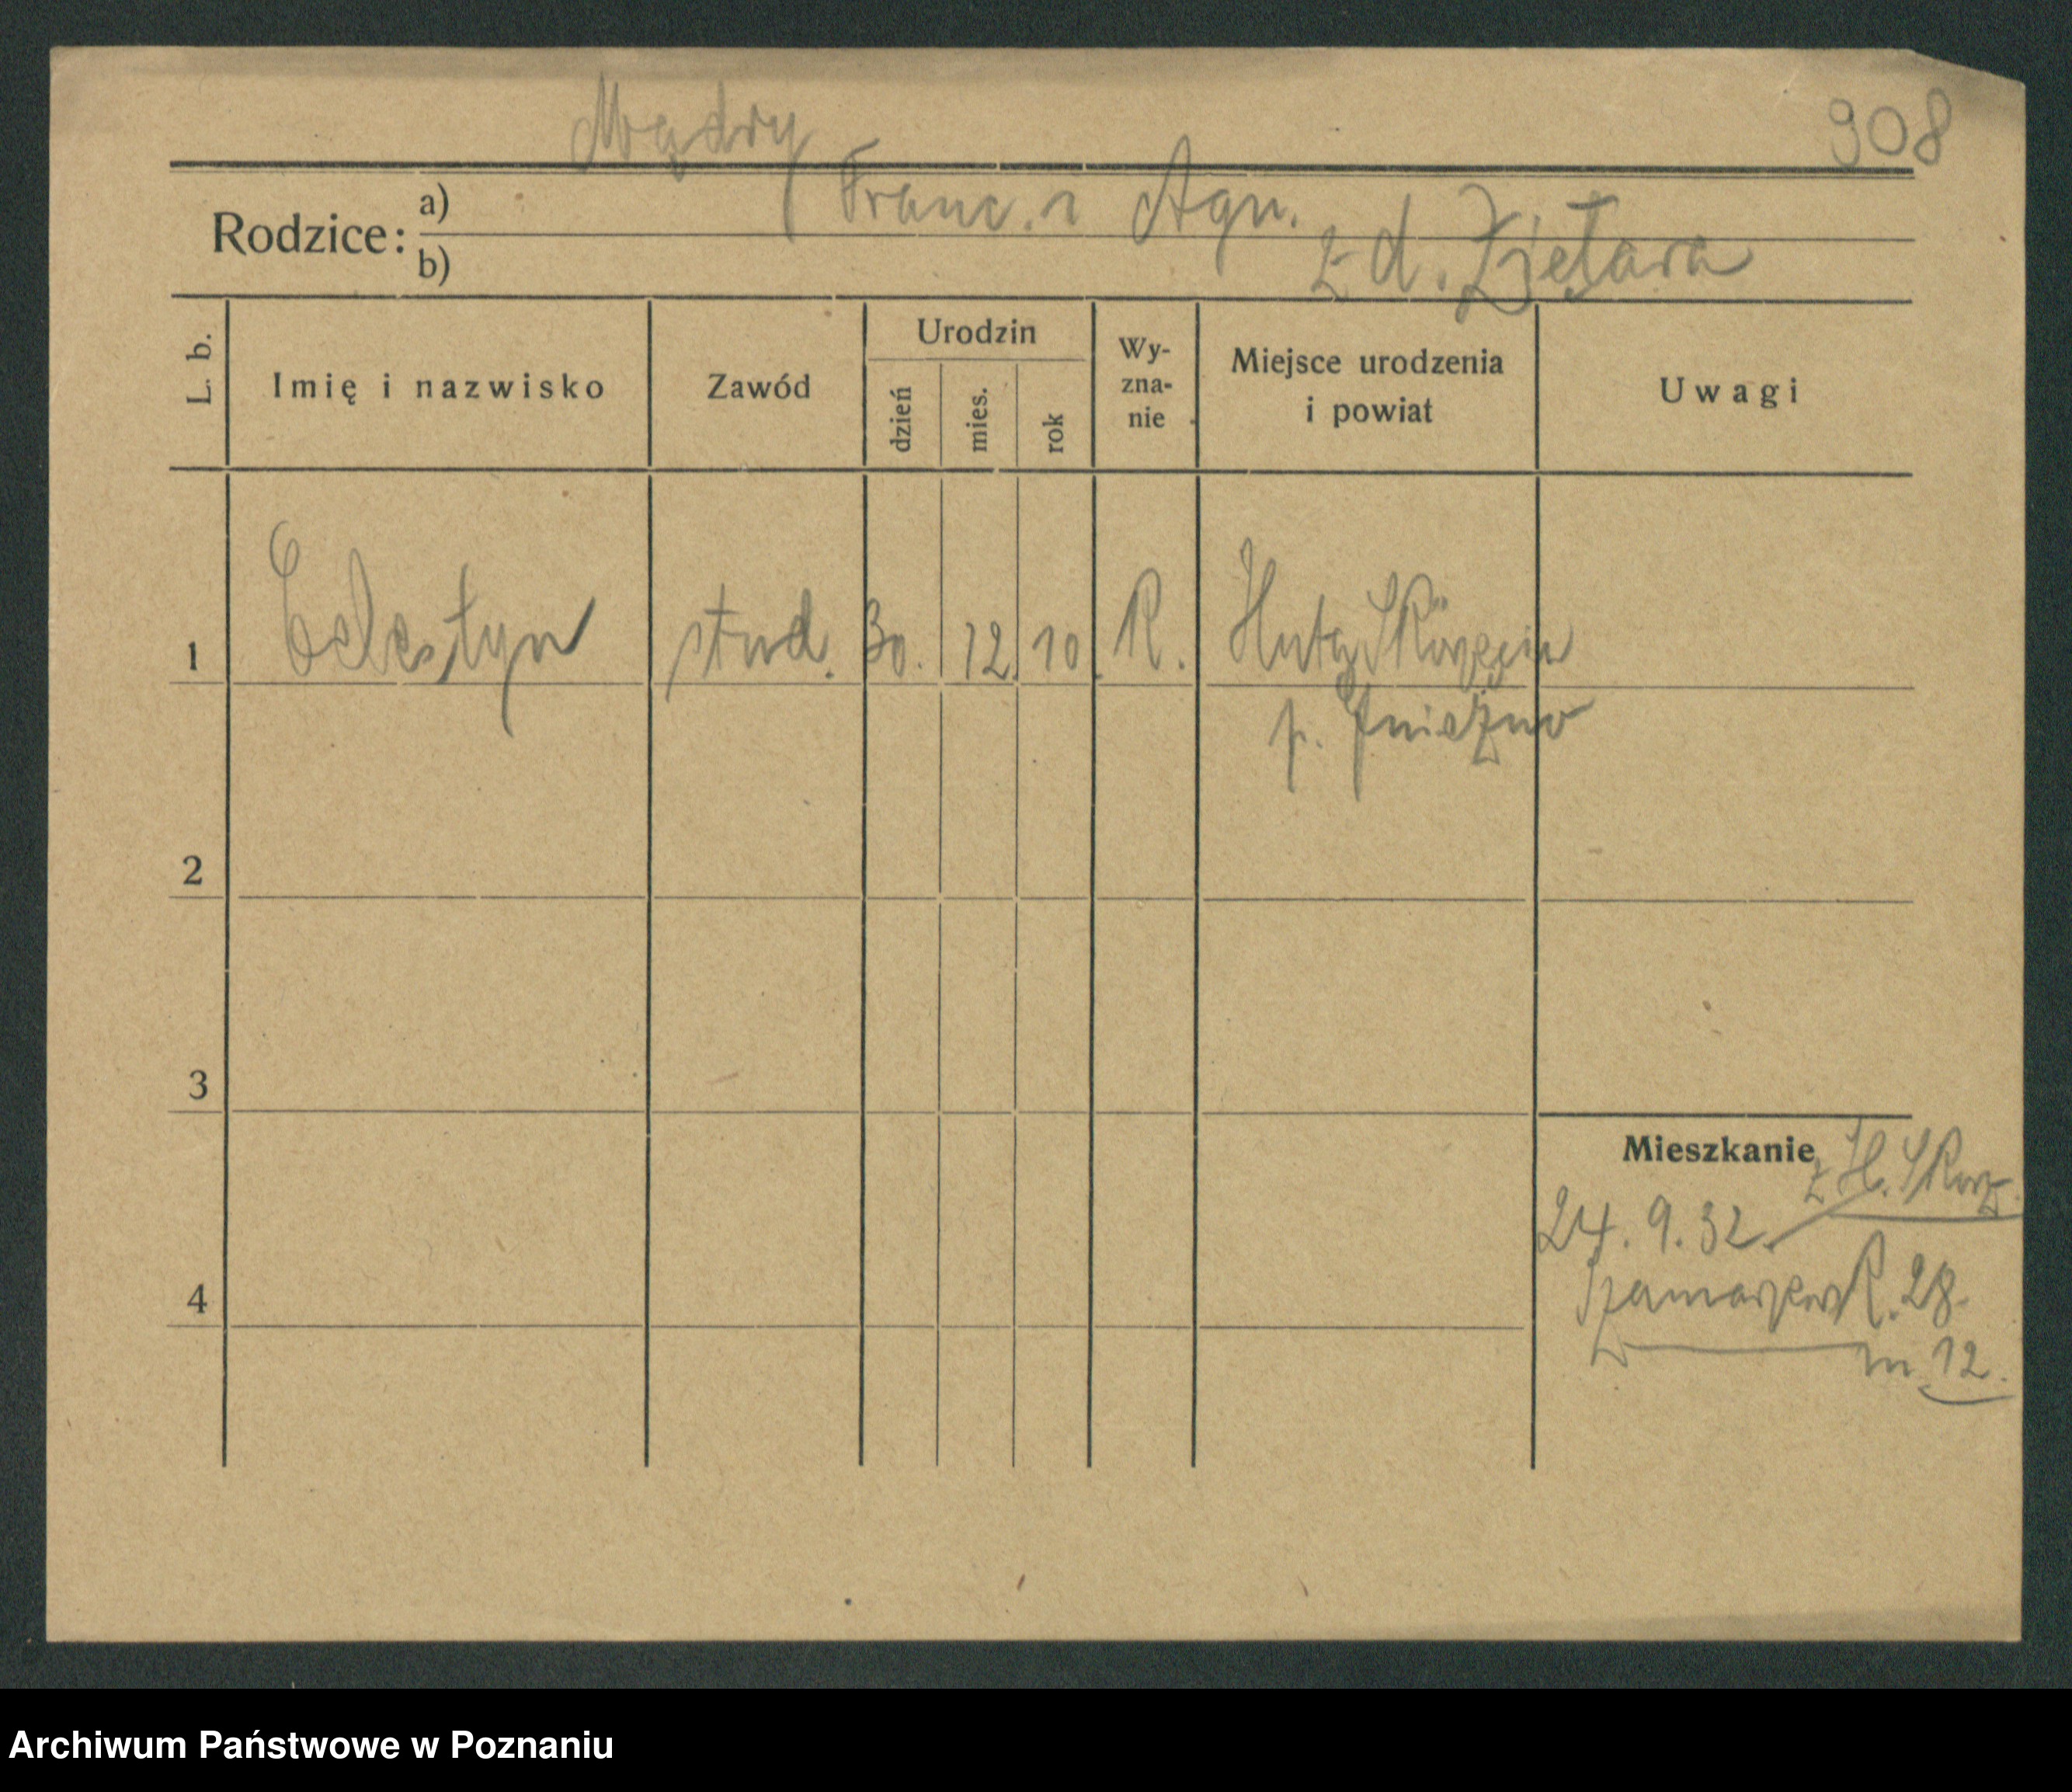 Mądry
908
Rodzice: a) Franc. i Agn.
b) z d. Ziętara
L. b.
Imię i nazwisko
Zawód
Urodzin
dzień
mies.
rok
Wy-
zna-
nie
Miejsce urodzenia
i powiat
Uwagi
1 Celestyn stud. 30. 12. 10. R. Huta
p. Gniezno
2
3
Mieszkanie z H. Skorz.
24. 9. 32.
4 28.
m 12.
Archiwum Państwowe w Poznaniu